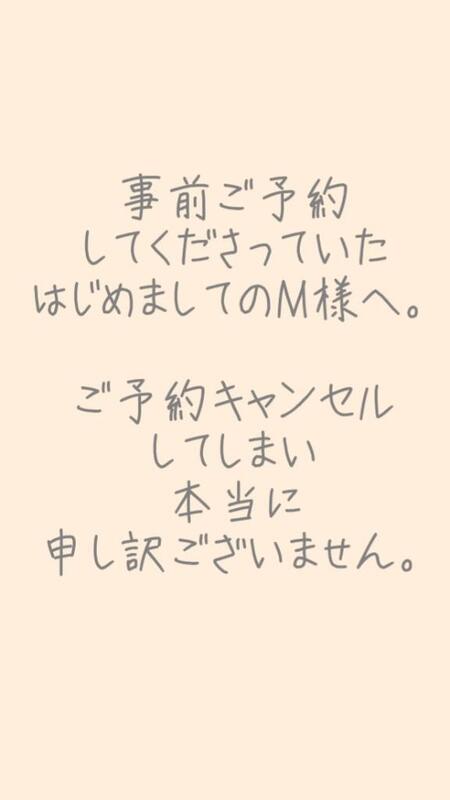 事前ご予約
してくださっていた
はじめましてのM様へ。
ご予約キャンセル
してしまい
本当に
申し訳ございません。